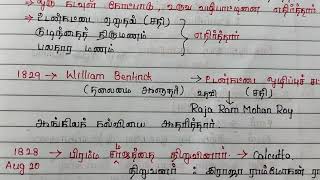 → ஒரு கடவுள் கோட்பாடு, உருவ வழிபாட்டினை எதிர்த்தார்
→ உடன்கட்டை ஏறுதல் (சதி)
குழந்தைத் திருமணம்
பலதார மணம்
எதிர்த்தார்
1829 → William Bentinck → உடன்கட்டை ஒழிப்புச் ச
(தலைமை ஆளுநர்) உதவி (சதி)
Raja Ram Mohan Roy
ஆங்கிலக் கல்வியை ஆதரித்தார்.
1828 → பிரம்ம சமாஜத்தை நிறுவினார். → Calcutta.
Aug 20 நிறுவனர் : இராஜா ராம்மோகன் ரா